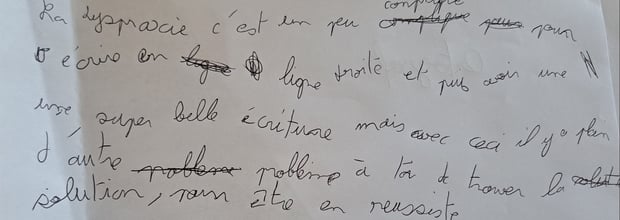 La dyspraxie c'est un peu compliqué pour
écrire en ligne droite et puis avoir une
une super belle écriture mais avec ceci il y a plein
d'autre problème à toi de trouver la
solution, pour être en reussiste